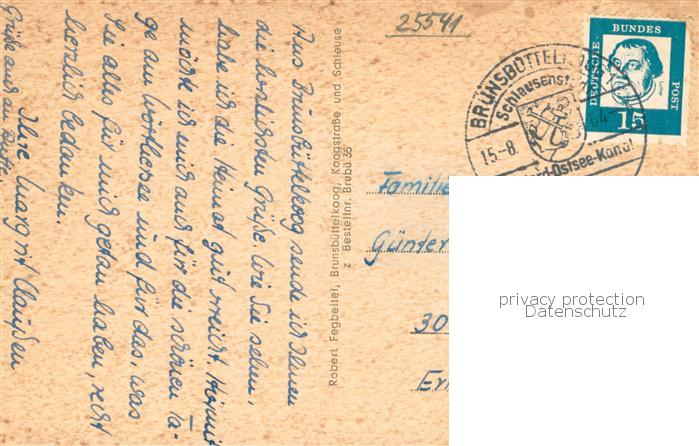 Aus Brunsbüttelkoog sende ich Ihnen
die herzlichsten Grüße. Wie Sie sehen,
habe ich die Heimat gut erreicht. Hiermit
möchte ich mich auch für die schönen Ta-
ge am Wörthersee und für das, was
Sie alles für mich getan haben, recht
herzlich bedanken.
Ihre Margrit Claußen
Grüße auch an
Robert Fegbeitel, Brunsbüttelkoog, Koogstraße und Schleuse
z Bestellnr. Brubü 35
25541
BRUNSBÜTTELKOOG
Schleusenst
15.-8.
Nord-Ostsee-Kanal
DEUTSCHE
BUNDES
POST
Luther
15
Familie
Günter
30
privacy protection
Datenschutz